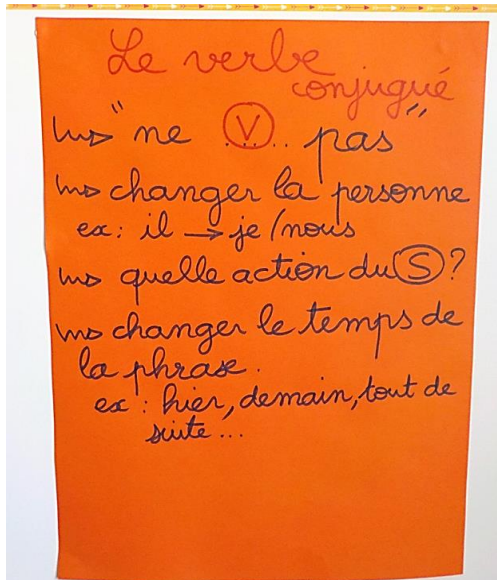 Le verbe
conjugué
"ne ..V.. pas"
changer la personne
ex : il → je / nous
quelle action du S ?
changer le temps de
la phrase.
ex : hier, demain, tout de
suite...